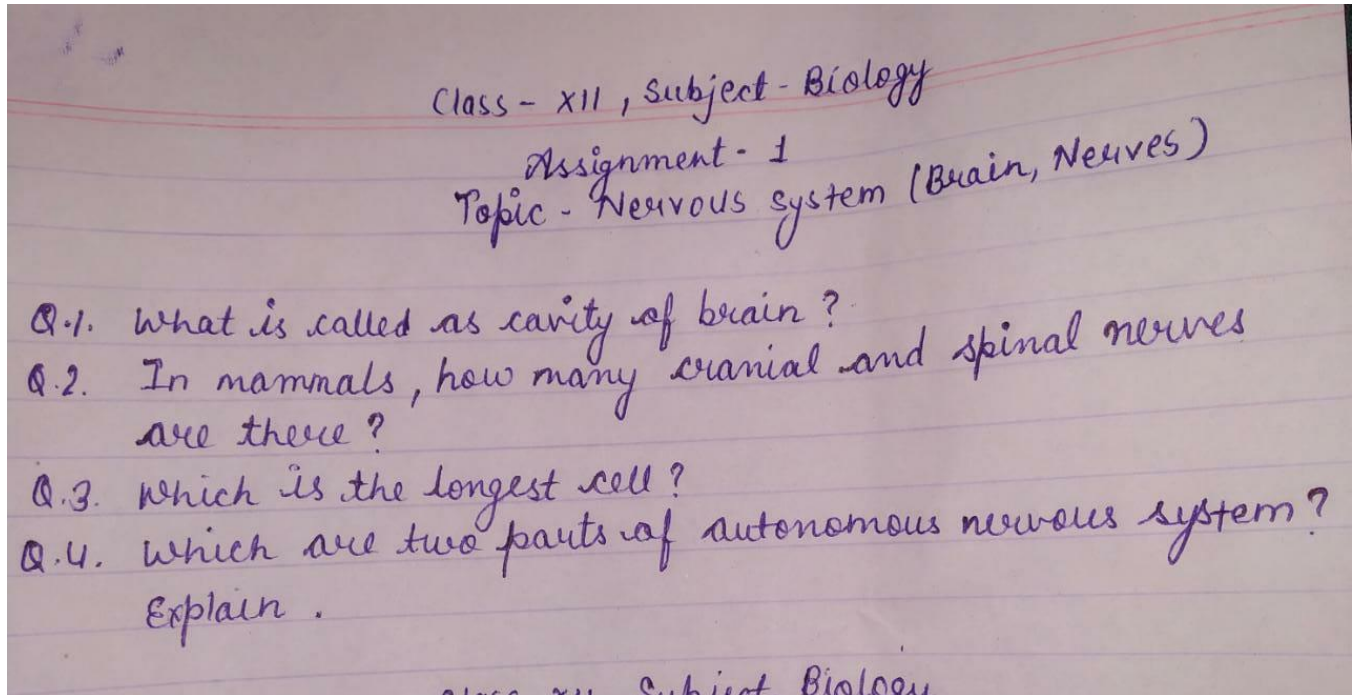 Class - XII, Subject - Biology
Assignment - 1
Topic - Nervous system (Brain, Nerves)
Q.1. What is called as cavity of brain?
Q.2. In mammals, how many cranial and spinal nerves
are there?
Q.3. Which is the longest cell?
Q.4. Which are two parts of autonomous nervous system?
Explain.
Class XII Subject Biology